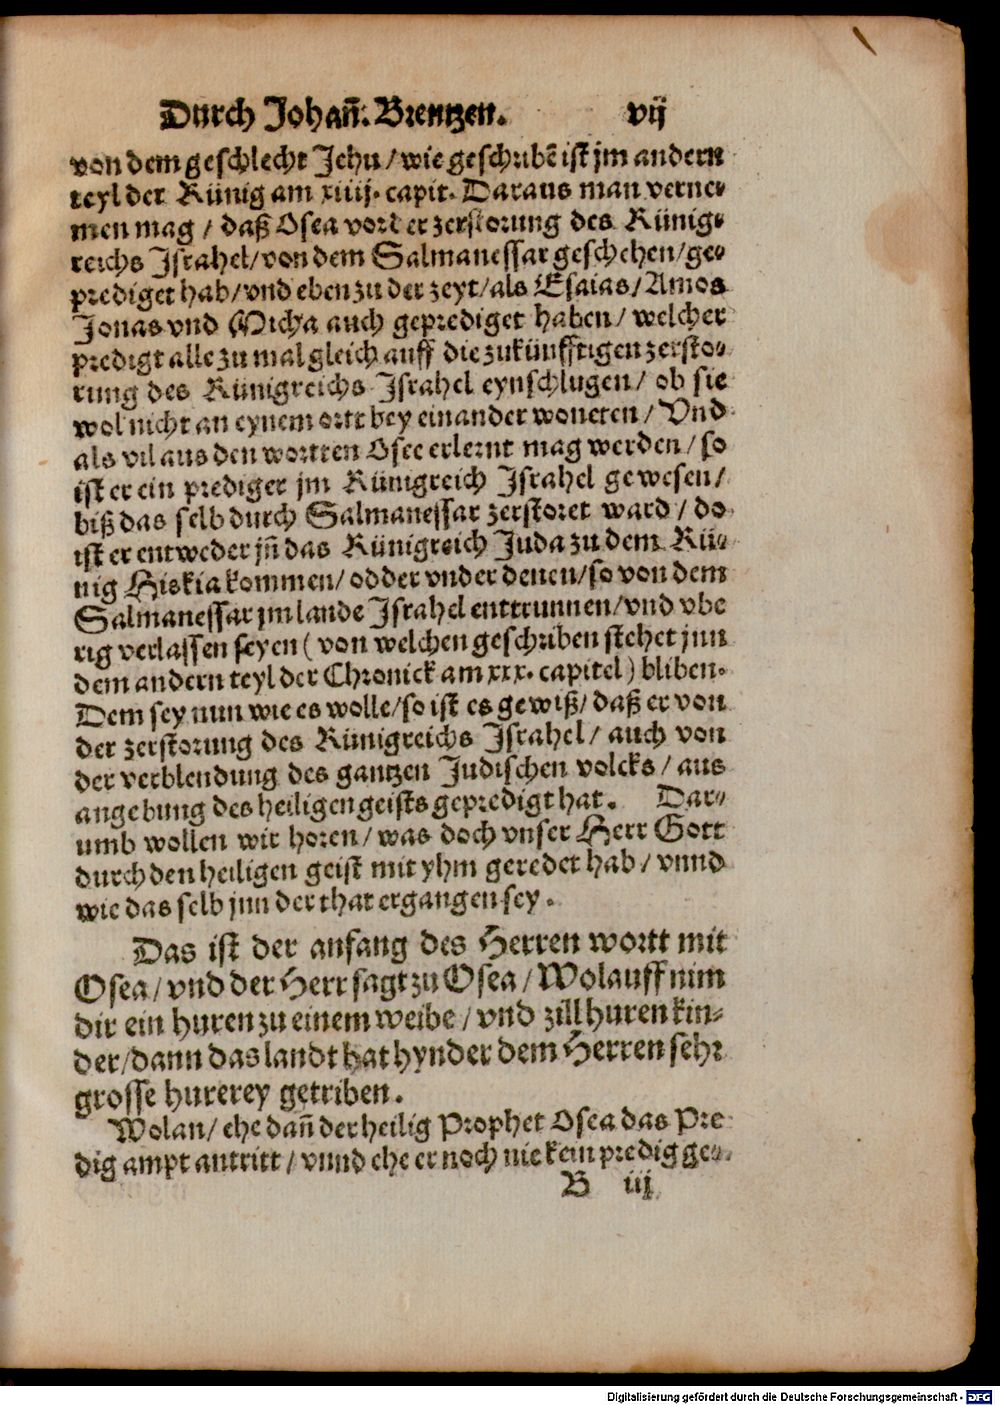 Durch Johañ. Brentzen. vij
von dem geschlecht Jehu / wie geschribē ist jm andern
teyl der Künig am xiiij. capit. Daraus man verne⸗
men mag / daß Osea vor der zerstorung des Künig⸗
reichs Israhel / von dem Salmanessar geschehen / ge⸗
prediget hab / vnd eben zu der zeyt / als Esaias / Amos
Jonas vnd Micha auch geprediget haben / welcher
predigt alle zu mal gleich auff die zukünfftigen zersto⸗
rung des Künigreichs Israhel eynschlugen / ob sie
wol nicht an eynem ortt bey einander woneten / Vnd
als vil aus den wortten Osee erlernt mag werden / so
ist er ein prediger jm Künigreich Israhel gewesen /
biß das selb durch Salmanessar zerstoret ward / do
ist er entweder jñ das Künigreich Juda zu dem Kü⸗
nig Hiskia kommen / odder vnder denen / so von dem
Salmanessar jm lande Israhel enttrunnen / vnd vbe
rig verlassen seyen ( von welchen geschriben stehet jnn
dem andern teyl der Chronick am xxx. capitel ) bliben.
Dem sey nun wie es wolle / so ist es gewiß / daß er von
der zerstorung des Künigreichs Israhel / auch von
der verblendung des gantzen Judischen volcks / aus
angebung des heiligen geists gepredigt hat. Dar⸗
umb wollen wir horen / was doch vnser Herr Gott
durch den heiligen geist mit yhm geredet hab / vnnd
wie das selb jnn der that ergangen sey.
Das ist der anfang des Herren wortt mit
Osea / vnd der Herr sagt zu Osea / Wolauff nim
dir ein huren zu einem weibe / vnd zill huren kin⸗
der / dann das landt hat hynder dem Herren sehr
grosse hurerey getriben.
Wolan / ehe dañ der heilig Prophet Osea das Pre
dig ampt antritt / vnnd ehe er noch nie kein predig ge⸗
B iij
Digitalisierung gefördert durch die Deutsche Forschungsgemeinschaft - DFG